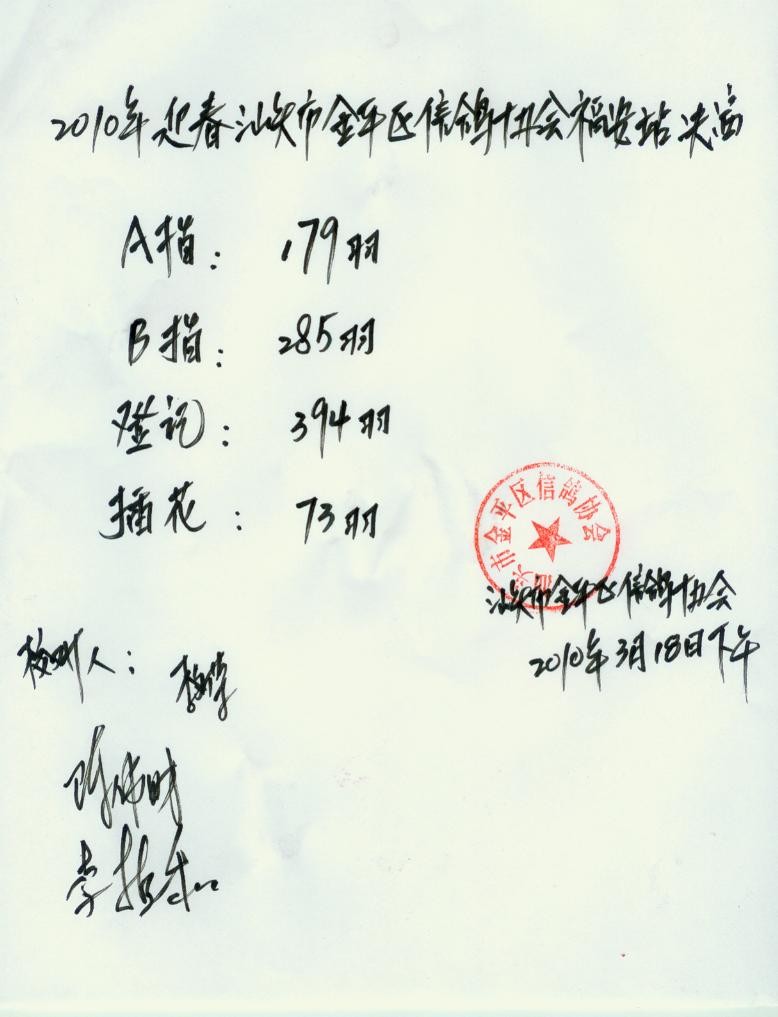 2010年迎春汕头市金平区信鸽协会福安站决赛
A指: 179羽
B指: 285羽
登记: 394羽
插花: 73羽
汕头市金平区信鸽协会
汕头市金平区信鸽协会
2010年3月18日下午
校对人: